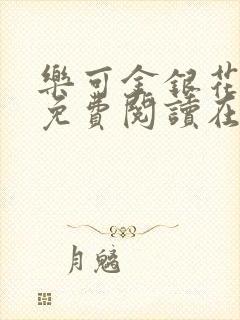 樂可金銀花
免費閱讀在
月魑